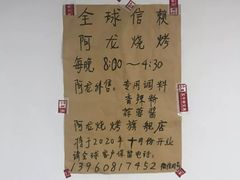 全球信赖
阿龙烧烤
每晚 8:00～4:30
阿龙外售：专用调料
香辣粉
蒜蓉酱
阿龙烧烤旗舰店
将于2020年十月份开业
请全球客户保留电话：
13960817452